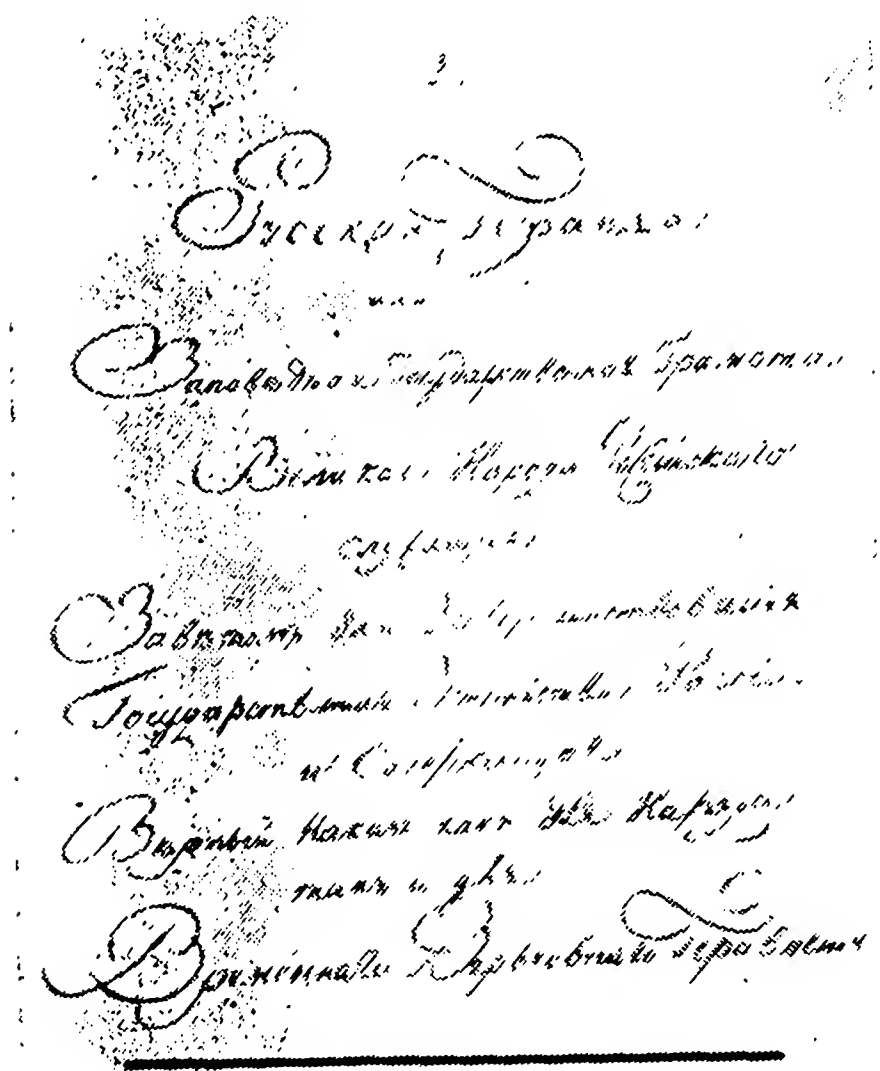 3.
Русская Правда.
или
Заповѣдная Государственная Грамота
Великаго Народа Россійскаго
служащая
Завѣтомъ для Усовершенствованія
Государственнаго Устройства Россіи
и Содержащая
Вѣрный Наказъ какъ для Народа
такъ и для
Временнаго Верховнаго Правленія